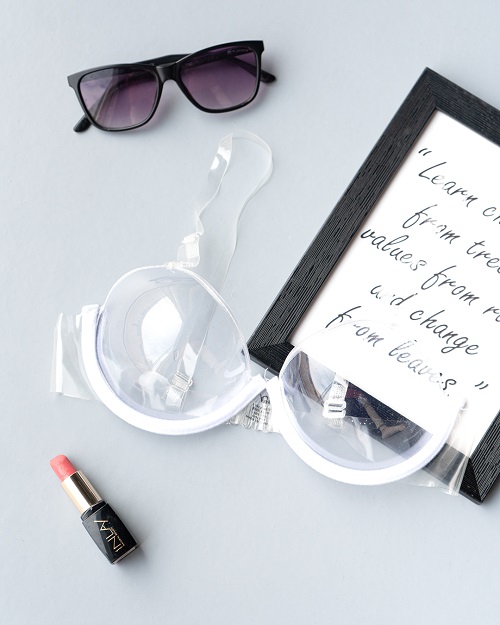 "Learn
from
values from
and change
from leaves."
INLAY